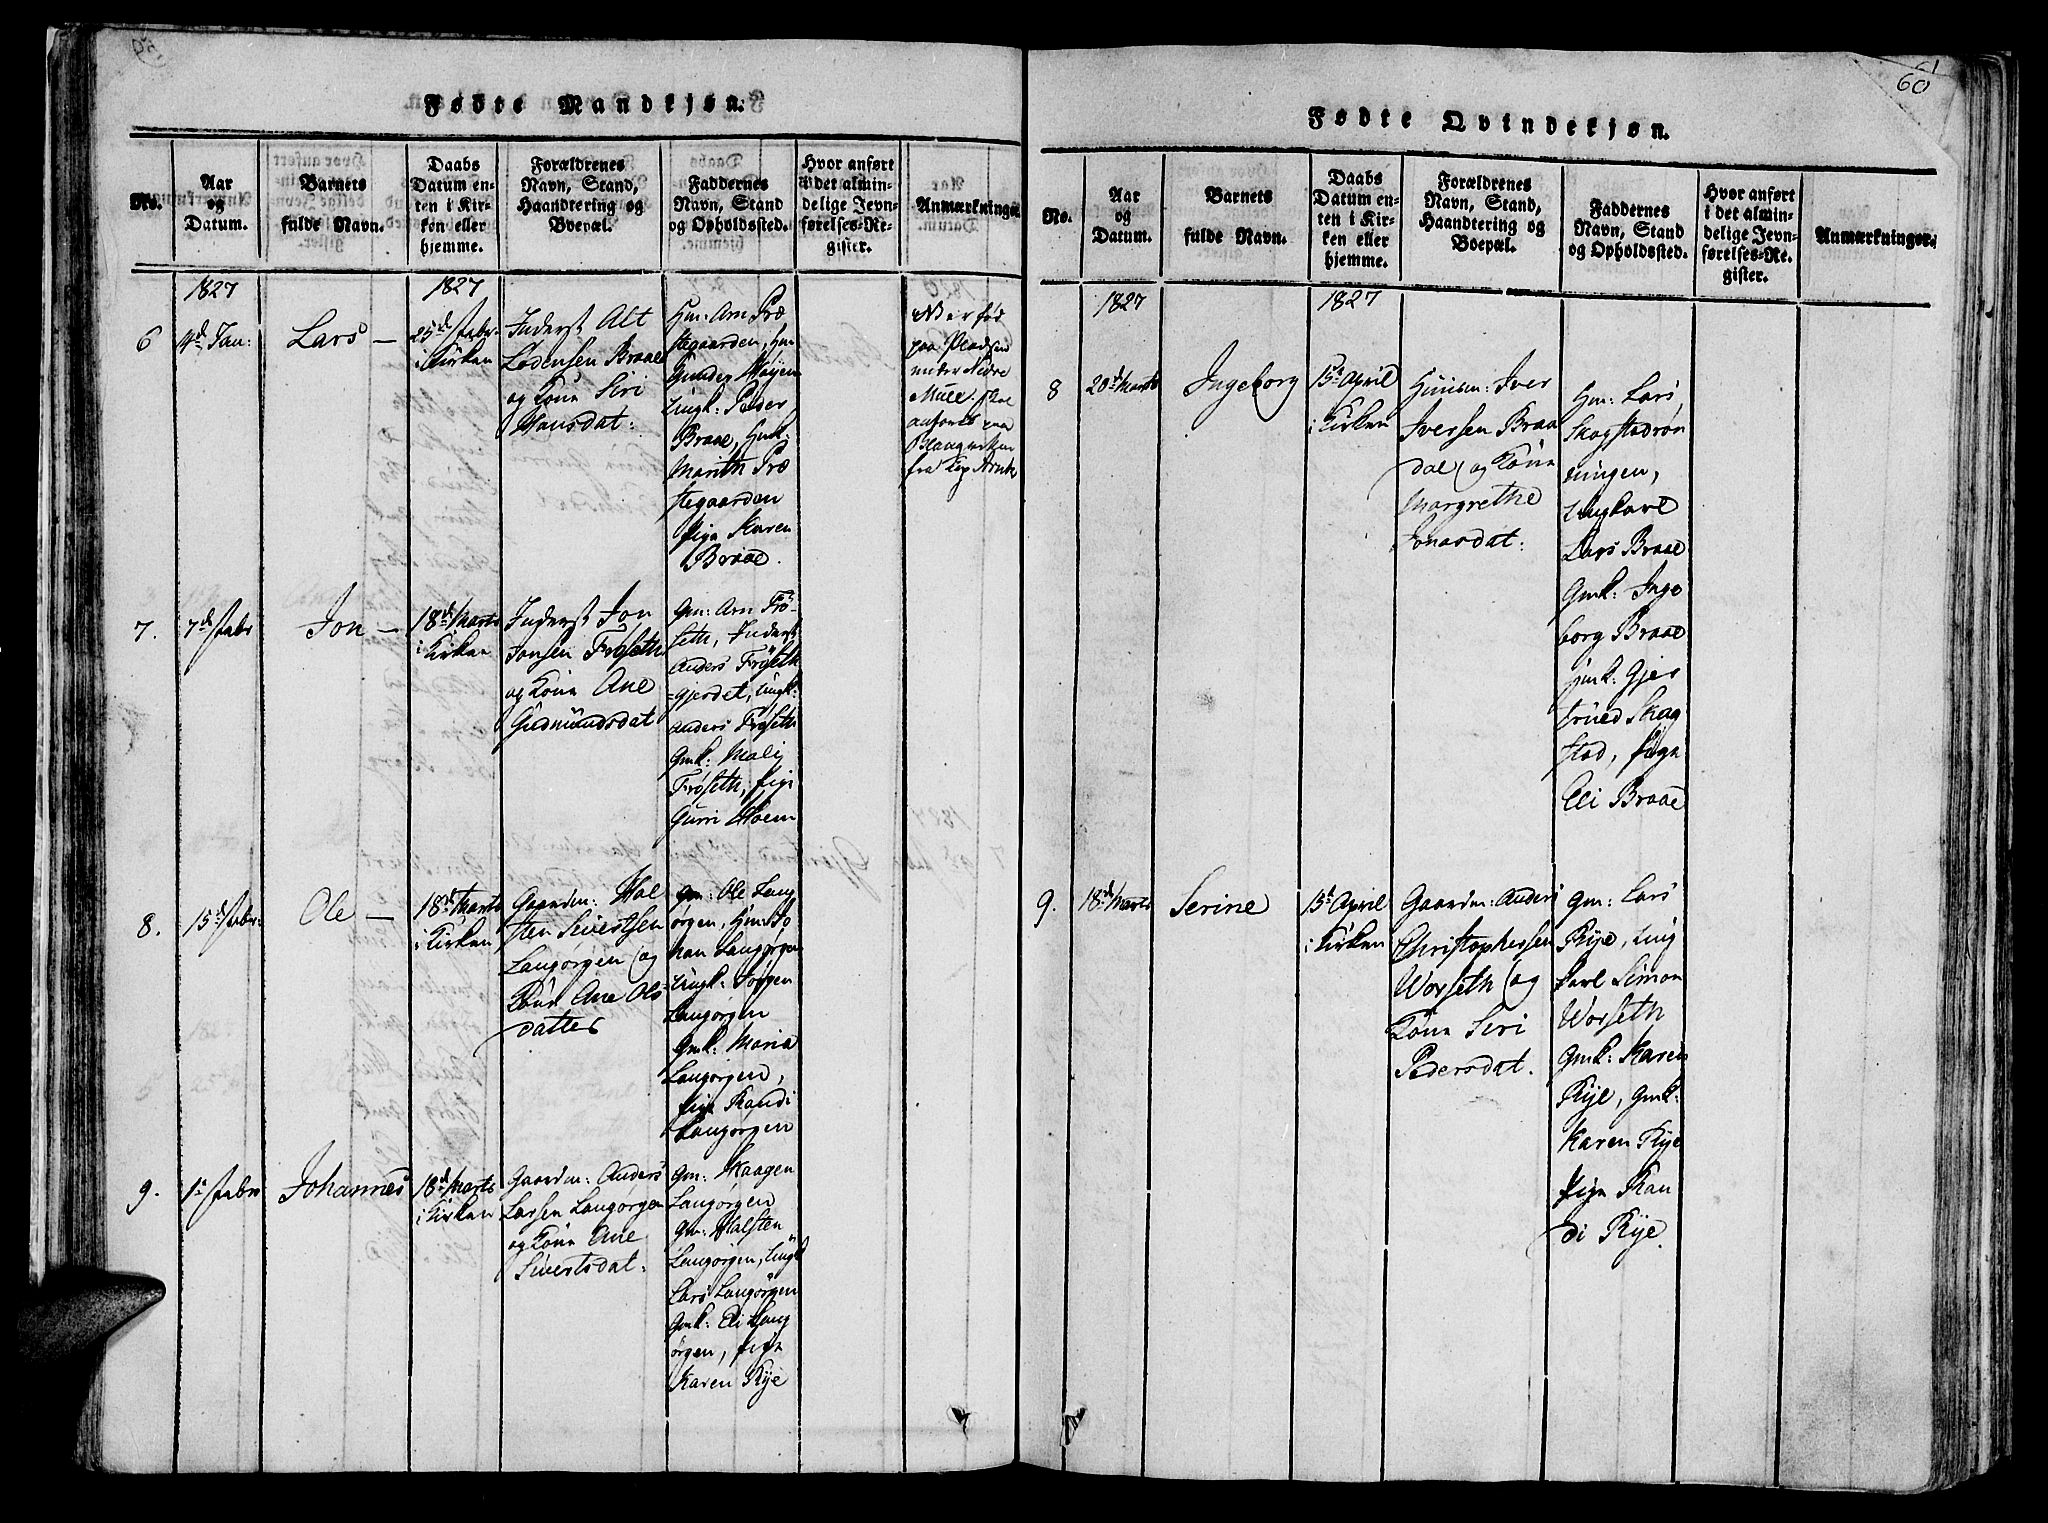 59
Fødte Mandkjøn.
No.
Aar
og
Datum.
Barnets
fulde Navn.
Daabs
Datum en-
ten i Kir-
ken eller
hjemme.
Forældrenes
Navn, Stand,
Haandtering og
Boepæl.
Faddernes
Navn, Stand
og Opholdssted.
Hvor anført
i det almin-
delige Jevn-
førelses-Re-
gister.
Anmærkninger.
1827
1827
6
4d Jan:
Lars
25d Febr
i Kirken
Inderst Alt
Lodensen Braae
og Kone Siri
Hansdat:
Gm: Arn Præ
stegaarden, Gm
Gunder Moyen
Ungk: Peder
Braae, Gmk:
Marith Præ
stegaarden
Pige Karen
Braae.
N er fød
paa Pladsen
under Nedre
Mule. skal
anføres paa
fra
7.
7d Febr
Jon
18d Marts
i Kirken
Inderst Jon
Jonsen Frøseth
og Kone Ane
Gudmundsdat
Gm: Arn Frø-
seth, Inderst
Anders Frøseth
-gjerdet, Ungk:
Anders Frøseth
Gmk: Mali
Frøseth, Pige
Gurri Moem
8.
15d Febr:
Ole
18d Marts
i Kirken
Gaardm: Hal
sten Sivertsen
Langørgen og
Kone Ane Ols
datter
Gm: Ole Lang
ørgen, Gm: Jo
han Langørgen
Ungk: Jørgen
Langørgen
Gmk: Maria
Langørgen,
Pige Randi
Langørgen
9.
1d Febr
Johannes
18d Marts
i Kirken
Gaardm: Anders
Larsen Langørgen
og Kone Ane
Sivertsdat:
Gm: Haagen
Langørgen
Gm: Halsten
Langørgen, Ungk
Lars Langørgen
Gmk: Eli Lang
ørgen, Pige
Karen Rye
60
Fødte Qvindekjøn.
No.
Aar
og
Datum.
Barnets
fulde Navn.
Daabs
Datum en-
ten i Kir-
ken eller
hjemme.
Forældrenes
Navn, Stand,
Haandtering og
Boepæl.
Faddernes
Navn, Stand
og Opholdssted.
Hvor anført
i det almin-
delige Jevn-
førelses-Re-
gister.
Anmærkninger.
1827
1827
8
20d Marts
Ingeborg
15d April
i Kirken
Huusm: Iver
Iversen Braa
dal og Kone
Margrethe
Jonasdat:
Hm: Lars
Skogstadrøn
ningen,
Ungkarl
Lars Braae
Gmk: Inge
borg Braae
Hmk: Gjer
trued Skog
stad, Pige
Eli Braae
9.
18d Marts
Serine
15d April
i Kirken
Gaardm: Anders
Christophersen
Worseth og
Kone Seri
Pedersdat.
Gm: Lars
Rye, Ung
karl Simon
Worseth
Gmk: Karen
Rye, Gmk:
Karen Rye
Pige Ran
di Rye.